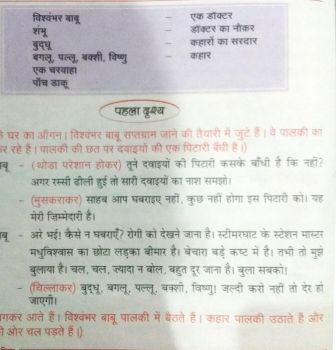 विश्वंभर बाबू – एक डॉक्टर
शंभू – डॉक्टर का नौकर
बुद्धू – कहारों का सरदार
बगलू, पल्लू, बक्शी, विष्णु – कहार
एक चरवाहा
पाँच डाकू
पहला दृश्य
के घर का आँगन। विश्वंभर बाबू सप्तग्राम जाने की तैयारी में जुटे हैं। वे पालकी का
कर रहे हैं। पालकी की छत पर दवाइयों की एक पिटारी बँधी है।)
बू – (थोड़ा परेशान होकर) तूने दवाइयों की पिटारी कसके बाँधी है कि नहीं?
अगर रस्सी ढीली हुई तो सारी दवाइयों का नाश समझो।
– (मुसकराकर) साहब आप घबराइए नहीं, कुछ नहीं होगा इस पिटारी को। यह
मेरी ज़िम्मेदारी है।
बू – अरे भई! कैसे न घबराएँ? रोगी को देखने जाना है। स्टीमरघाट के स्टेशन मास्टर
मधुविश्वास का छोटा लड़का बीमार है। बेचारा बड़े कष्ट में है। तभी तो मुझे
बुलाया है। चल, चल, ज्यादा न बोल, बहुत दूर जाना है। बुला सबको!
– (चिल्लाकर) बुद्धू, बगलू, पल्लू, बक्शी, विष्णु! जल्दी करो नहीं तो देर हो
जाएगी।
गकर आते हैं। विश्वंभर बाबू पालकी में बैठते हैं। कहार पालकी उठाते हैं और
की ओर चल पड़ते हैं।)